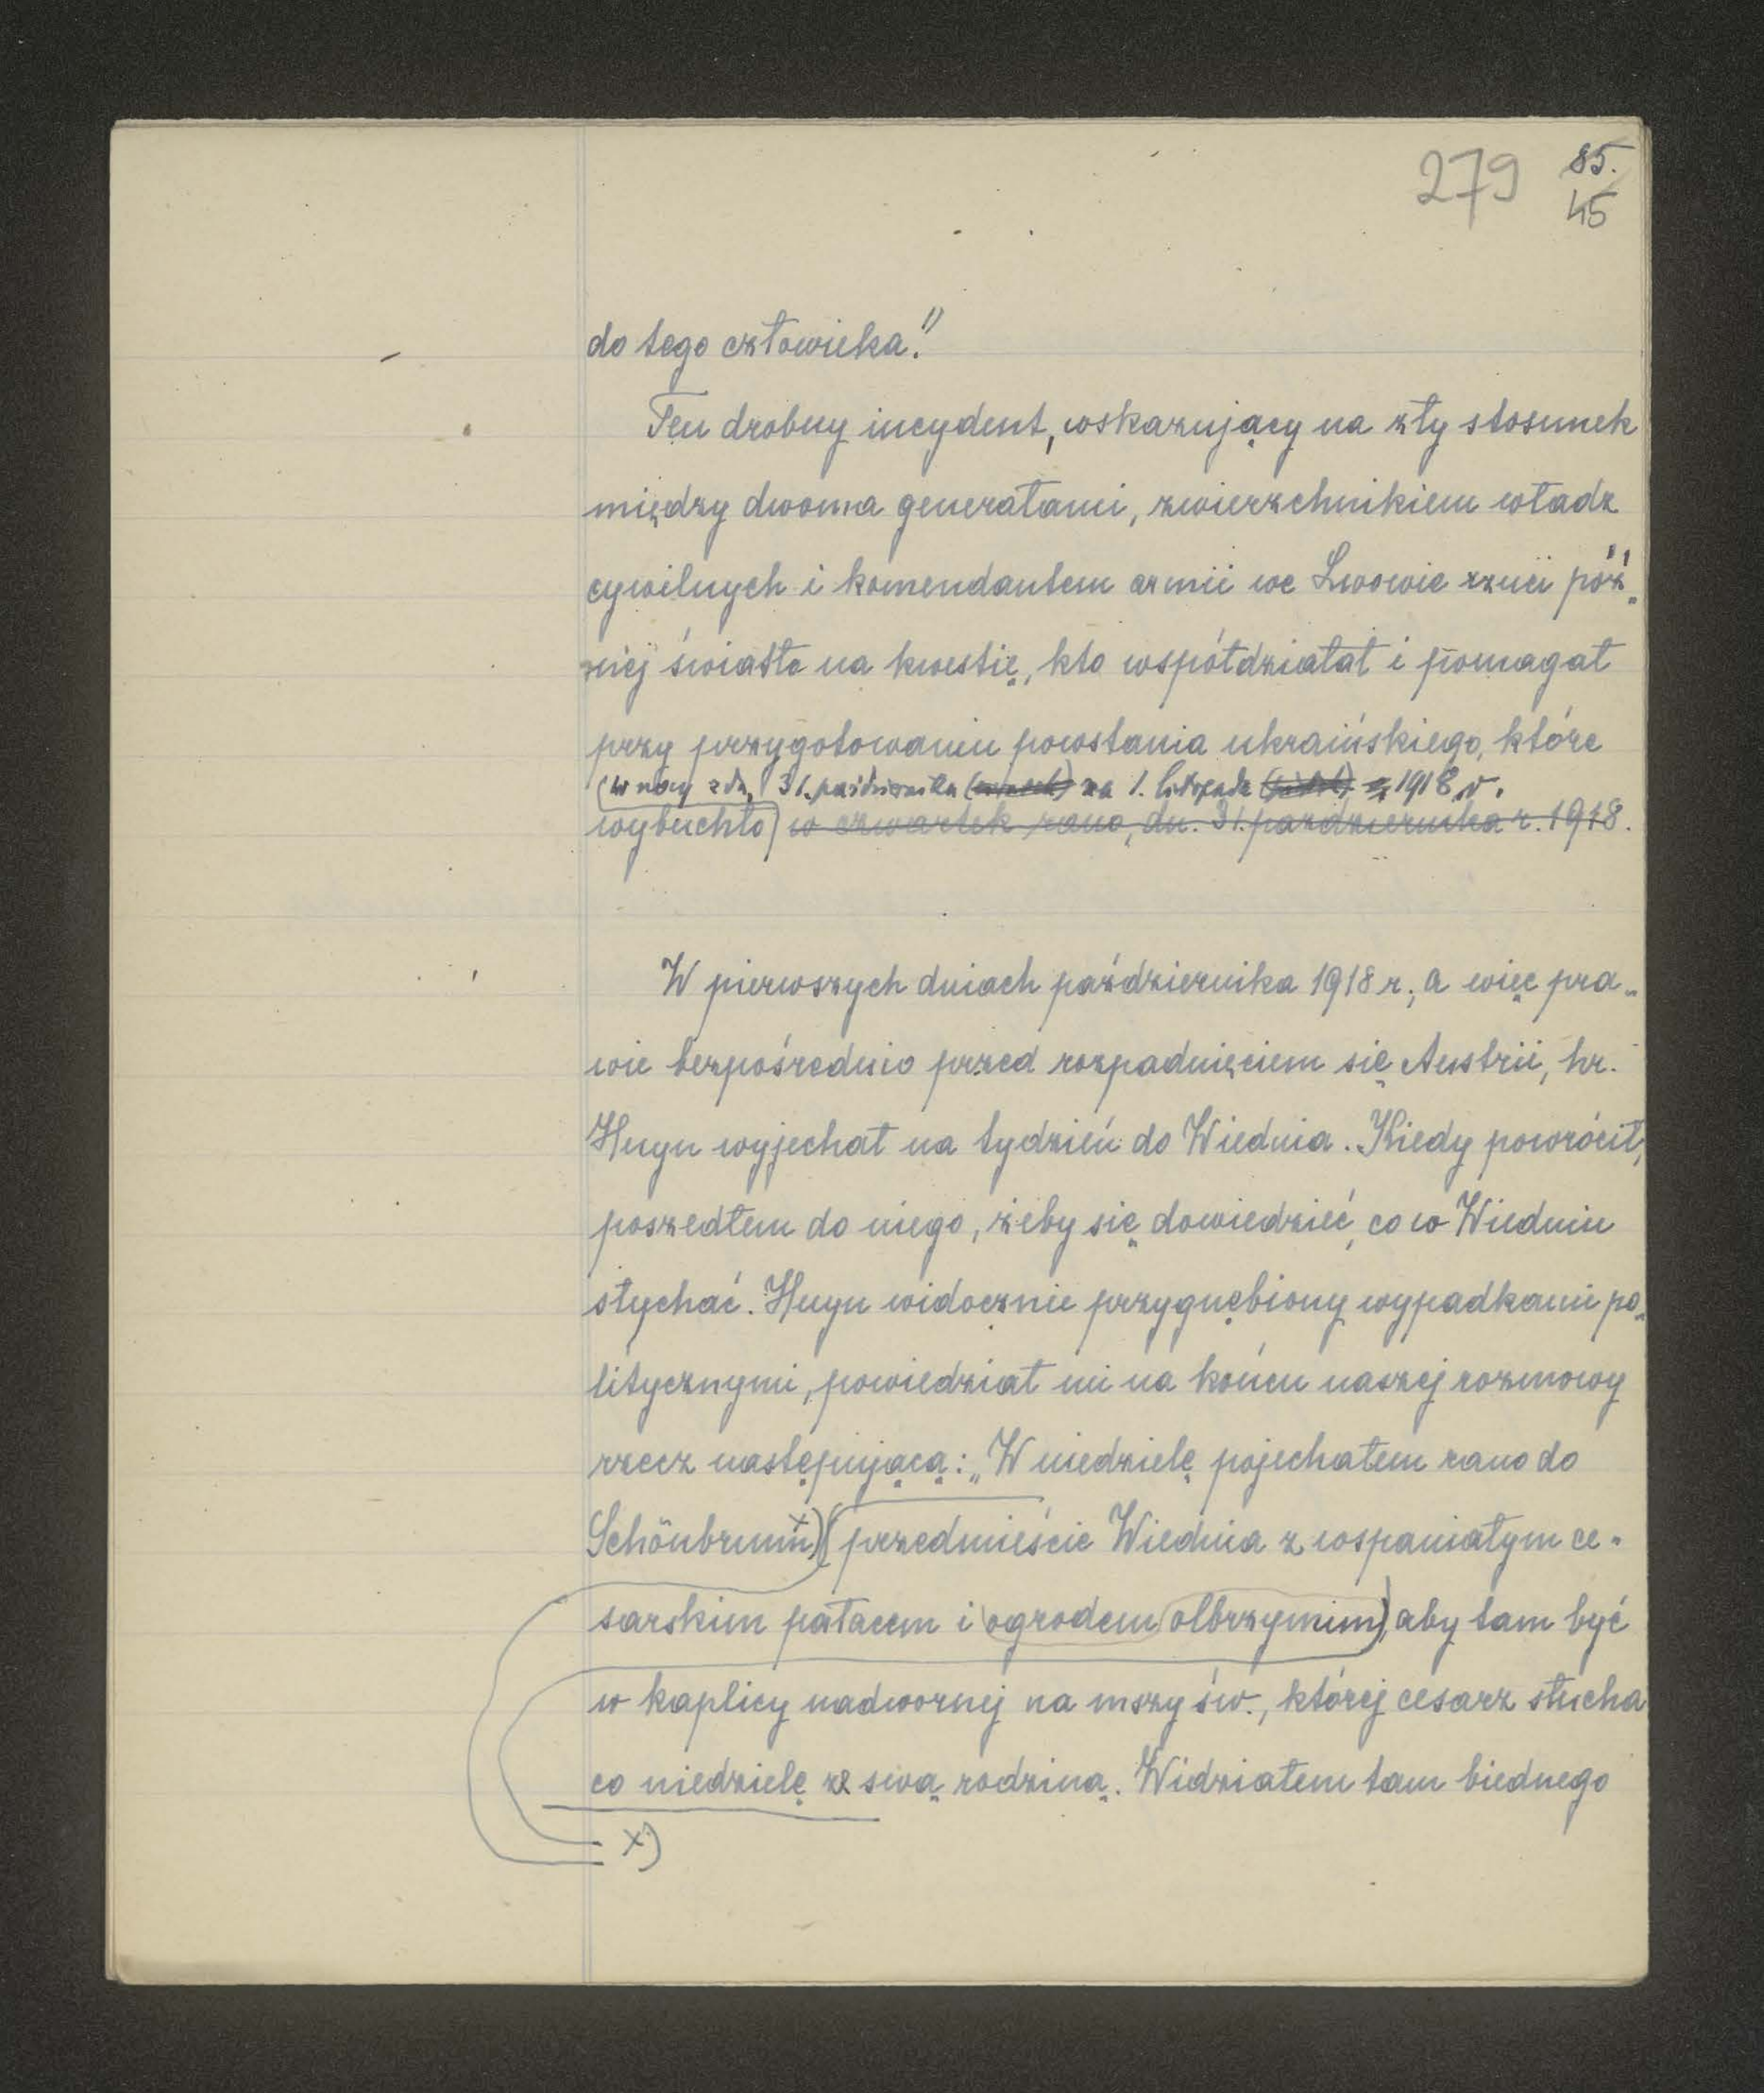 279 85.
45
do tego człowieka."
Ten drobny incydent, wskazujący na zły stosunek
między dwoma generałami, zwierzchnikiem władz
cywilnych i komendantem armii we Lwowie rzuci póź„
niej światło na kwestię, kto współdziałał i pomagał
przy przygotowaniu powstania ukraińskiego, które
(w nocy z dn. 31. października na 1. listopada 1918 r.
wybuchło) w czwartek rano, dn. 31. października r. 1918.
W pierwszych dniach października 1918 r., a więc pra„
wie bezpośrednio przed rozpadnięciem się Austrii, hr.
Huyn wyjechał na tydzień do Wiednia. Kiedy powrócił,
poszedłem do niego, żeby się dowiedzieć, co w Wiedniu
słychać. Huyn widocznie przygnębiony wypadkami po„
litycznymi, powiedział mi na końcu naszej rozmowy
rzecz następującą: „W niedzielę pojechałem rano do
Schönbrunn x) (przedmieście Wiednia z wspaniałym ce„
sarskim pałacem i ogrodem olbrzymim), aby tam być
w kaplicy nadwornej na mszy św., której cesarz słucha
co niedzielę ze swą rodziną. Widziałem tam biednego
x)